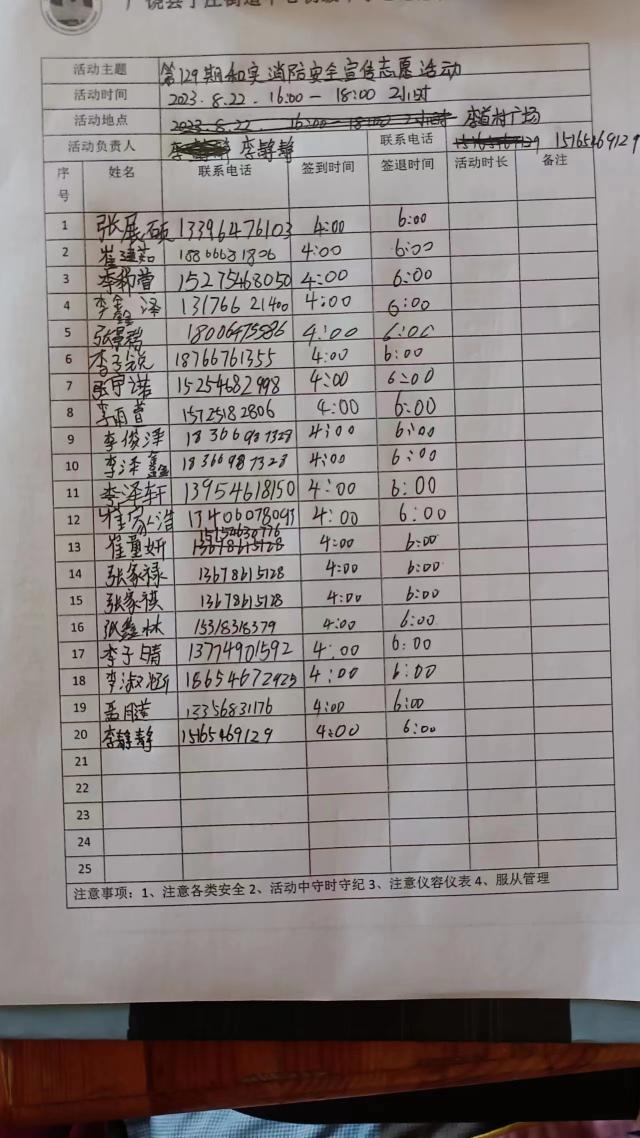 活动主题 第129期和实消防安全宣传志愿活动
活动时间 2023.8.22. 16:00-18:00 2小时
活动地点 2023.8.22. 16:00-18:00 2小时 李道村广场
活动负责人 李静静 联系电话 15165469129
序号 姓名 联系电话 签到时间 签退时间 活动时长 备注
1 张展硕 13396476103 4:00 6:00
2 崔 18866681806 4:00 6:00
3 李 15275468050 4:00 6:00
4 李鑫泽 13176621400 4:00 6:00
5 张景瑞 18006475586 4:00 6:00
6 李子锐 18766761355 4:00 6:00
7 张宇诺 15254682998 4:00 6:00
8 李雨萱 15725182806 4:00 6:00
9 李俊泽 18366987328 4:00 6:00
10 李泽鑫 18366987328 4:00 6:00
11 李泽轩 13954618150 4:00 6:00
12 崔家浩 13406078093 4:00 6:00
15154630776
13 崔童妍 13678615128 4:00 6:00
14 张家禄 13678615128 4:00 6:00
15 张家祺 13678615128 4:00 6:00
16 张鑫林 15318318379 4:00 6:00
17 李子晴 13774901592 4:00 6:00
18 李淑 18654672925 4:00 6:00
19 孟 13356831176 4:00 6:00
20 李静静 15165469129 4:00 6:00
21
22
23
24
25
注意事项：1、注意各类安全 2、活动中守时守纪 3、注意仪容仪表 4、服从管理